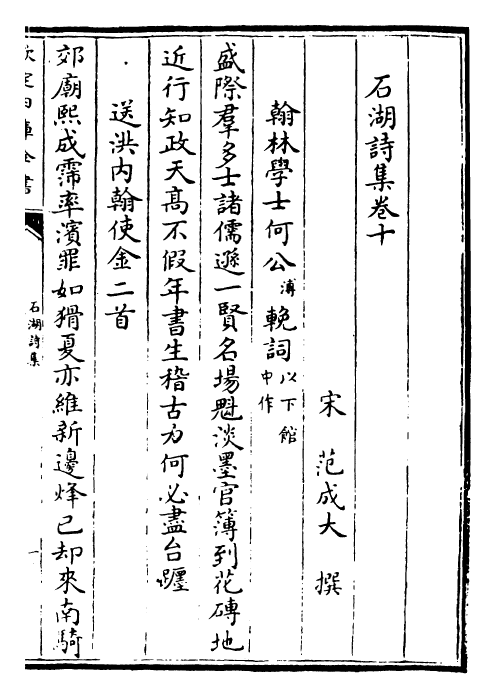 石湖詩集卷十
宋 范成大 撰
翰林學士何公溥輓詞以下館中作
盛際羣多士諸儒遜一賢名場魁淡墨官簿到花磚地
近行知政天髙不假年書生稽古力何必盡台躔
送洪内翰使金二首
郊廟熙成霈率濱罪如猾夏亦維新邊烽已却來南騎
欽定四庫全書
石湖詩集
一